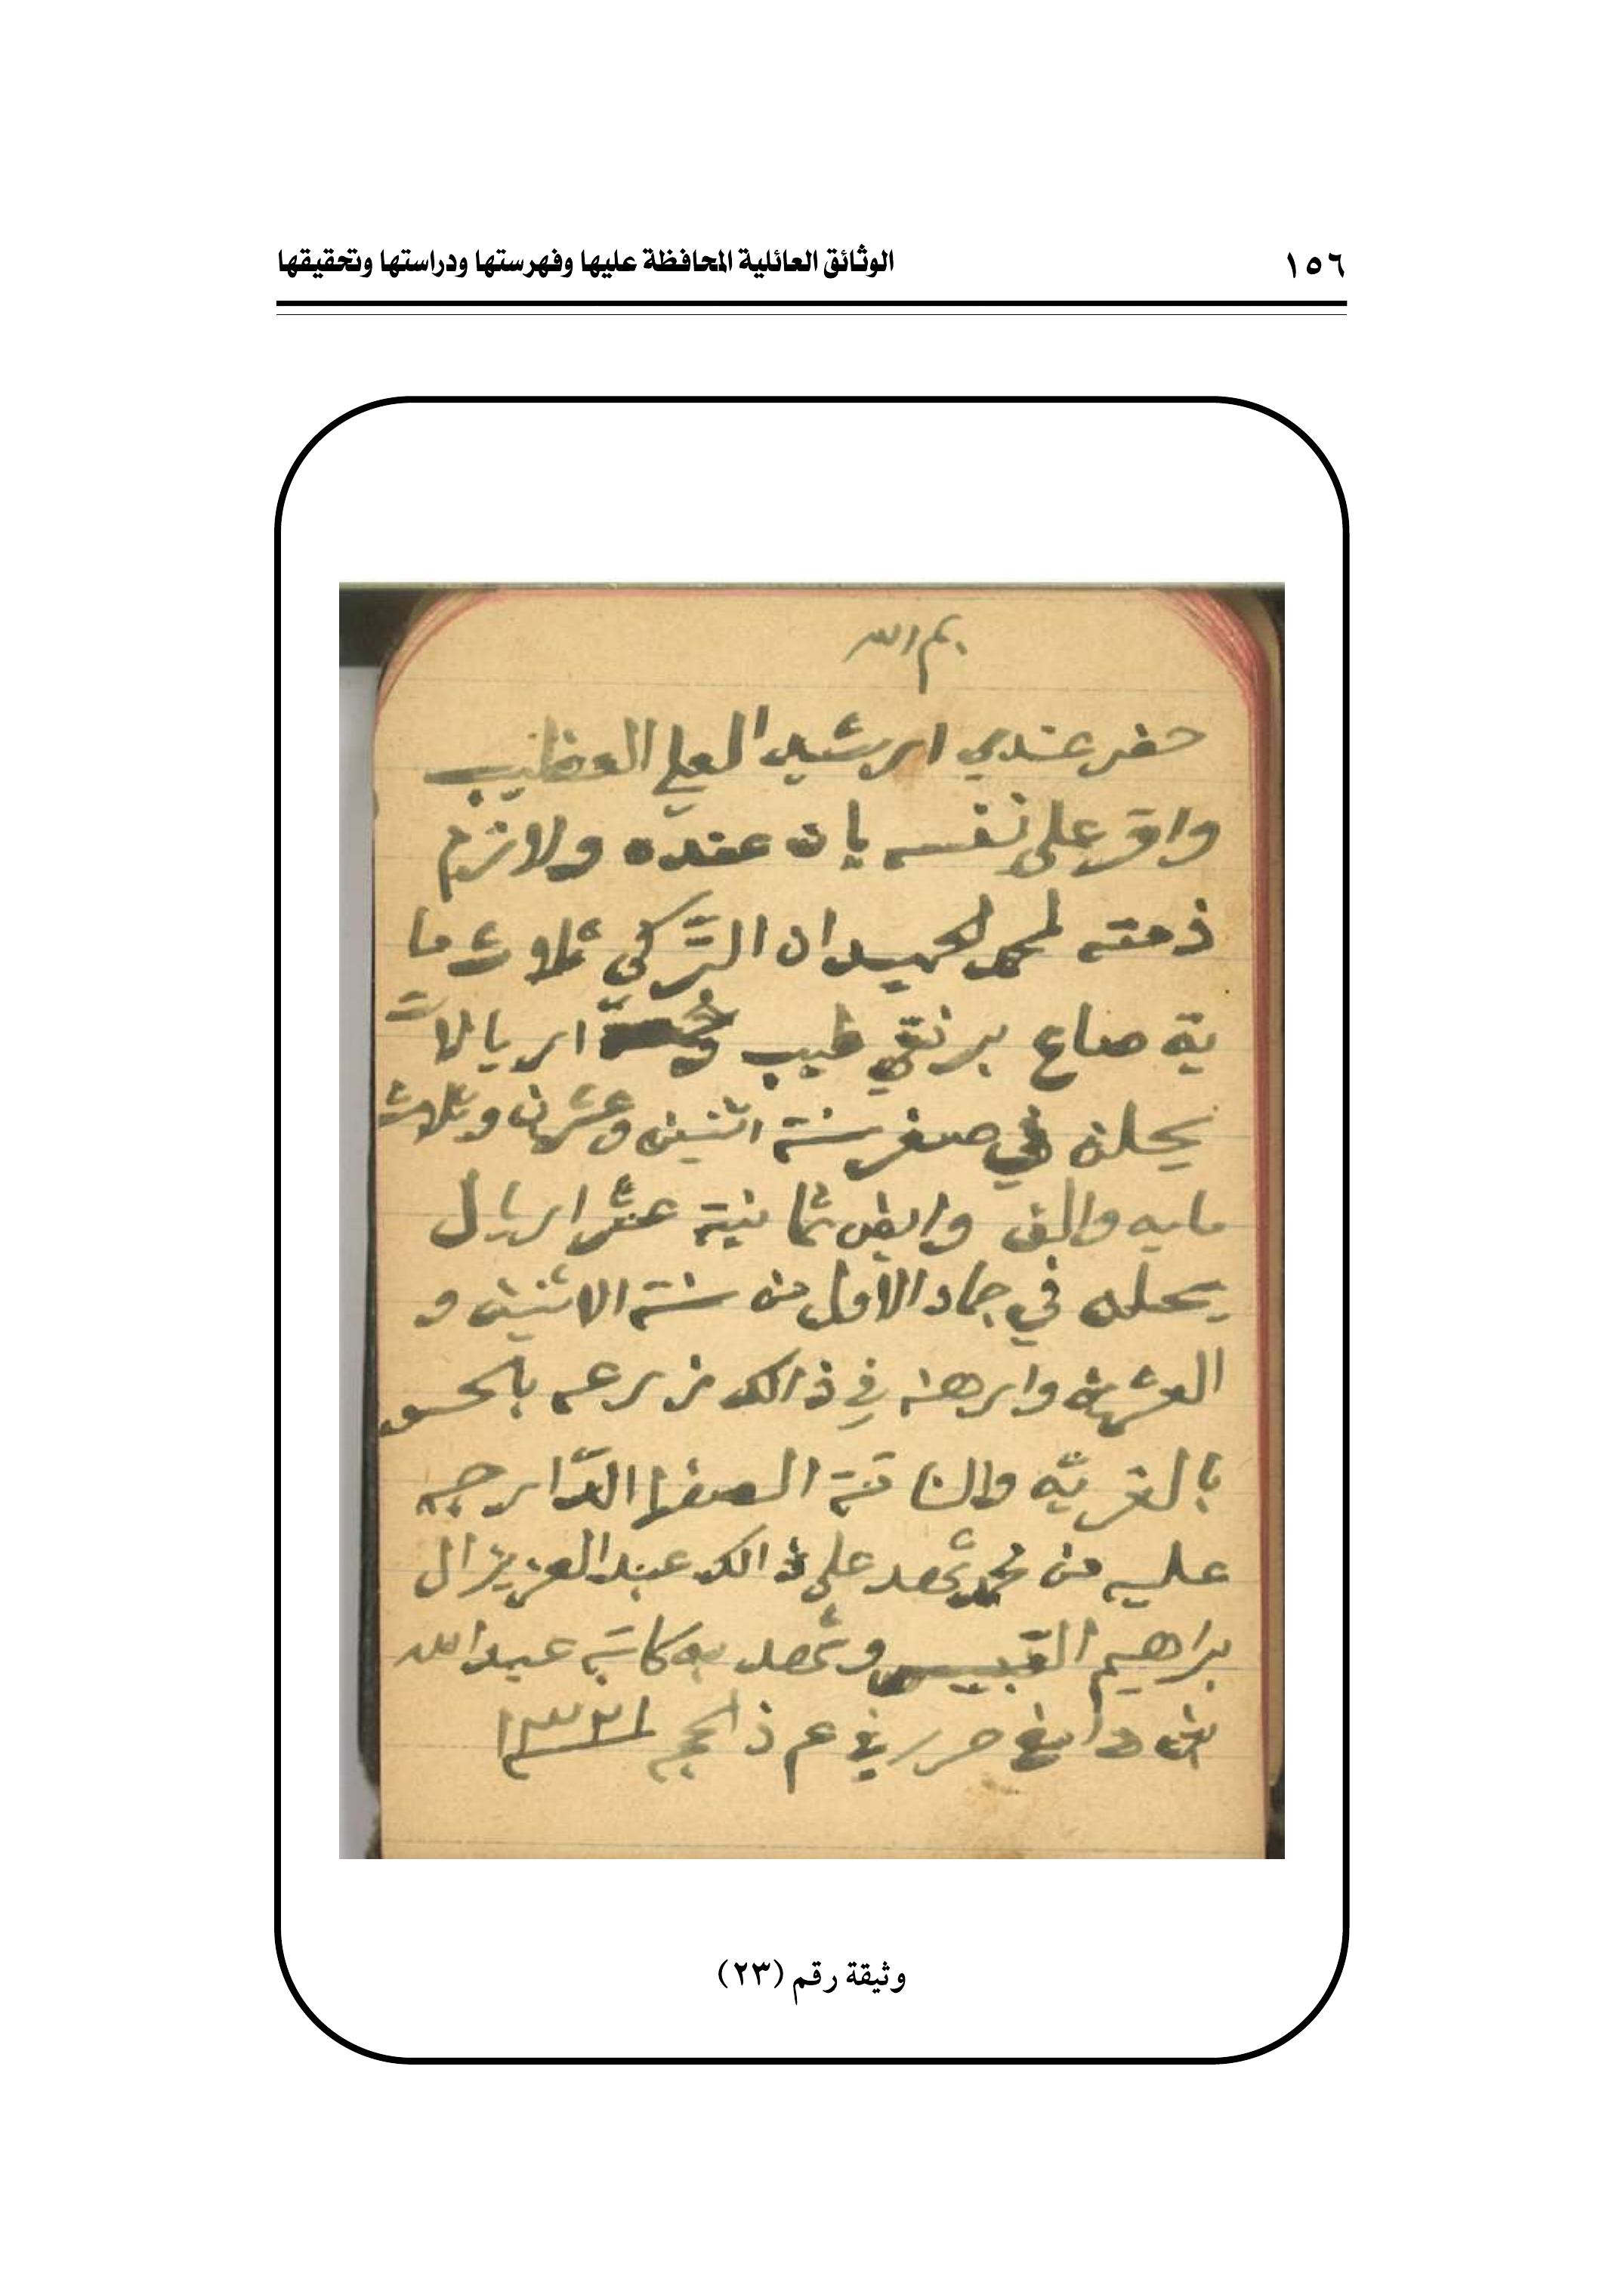 ١٥٦
الوثائق العائلية المحافظة عليها وفهرستها ودراستها وتحقيقها
بسم الله
حضر عندي ارشيد العلي
واقر على نفسه بان عنده ولازم
ذمته لمحمد الحميدان التركي ثلاث ما
ية صاع بر نقي طيب اريالات
يحلن في صفر سنة اثنين وعشرين وثلاث
مايه والف وايض ثمانية عشر اريال
يحلن في جماد الاول من سنة الاثنين و
العشرين وارهنه في ذالك زرعه
والناقة الصفرا الدارجه
عليه من محمد شهد على ذالك عبدالعزيز ال
براهيم وشهد به كاتبه عبدالله
حرر في ذالحجه ١٣٢١
وثيقة رقم (٢٣)